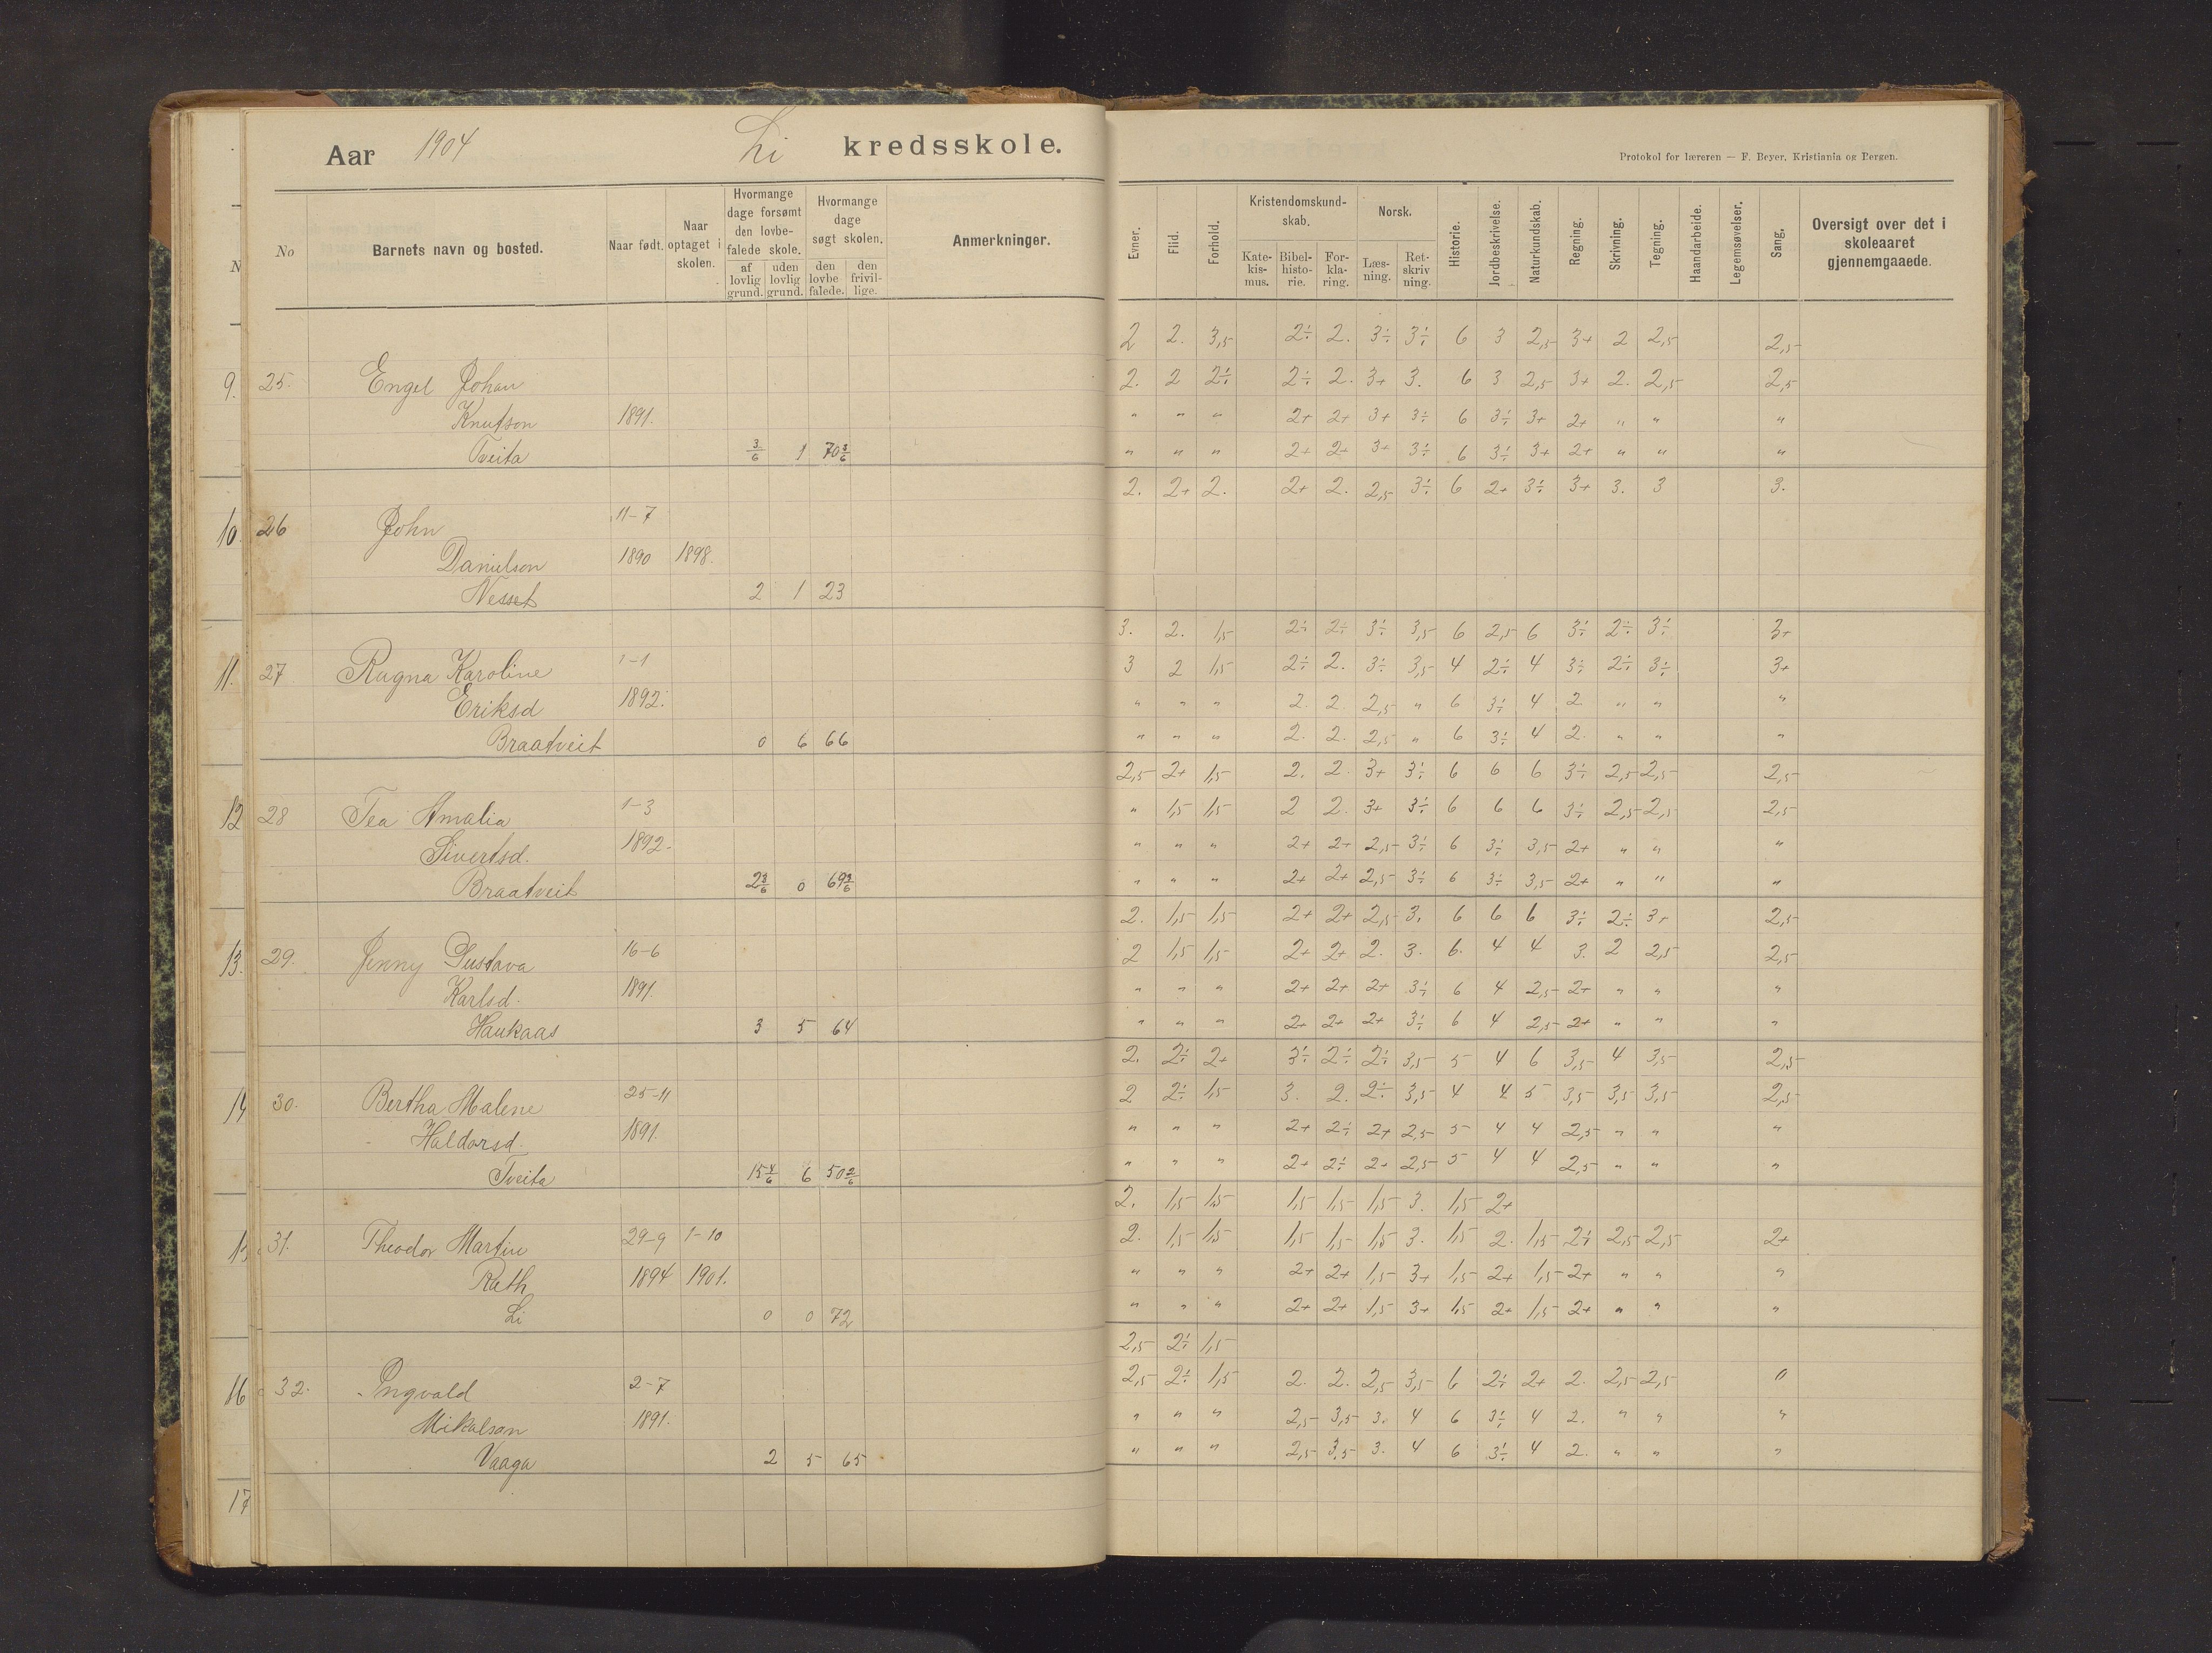 Aar 1904 Li kredsskole.
Protokol for læreren — F. Beyer, Kristiania og Bergen.
No Barnets navn og bosted. Naar født. Naar optaget i skolen. Hvormange dage forsømt den lovbefalede skole. af lovlig grund. uden lovlig grund. Hvormange dage søgt skolen. den lovbefalede. den frivillige. Anmerkninger.
Evner. Flid. Forhold. Kristendomskundskab. Katekismus. Bibelhistorie. Forklaring. Norsk. Læsning. Retskrivning. Historie. Jordbeskrivelse. Naturkundskab. Regning. Skrivning. Tegning. Haandarbeide. Legemsøvelser. Sang. Oversigt over det i skoleaaret gjennemgaaede.
2 2. 3,5 2÷ 2. 3÷ 3÷ 6 3 2,5 3+ 2 2,5 2,5
9. 25. Engel Johan 2. 2 2÷ 2÷ 2. 3+ 3. 6 3 2,5 3+ 2. 2,5 2,5
Knutson 1891. " " " 2+ 2+ 3+ 3÷ 6 3÷ 3+ 2+ " " "
Tveita 3/6 1 70 3/6 " " " 2+ 2+ 3+ 3÷ 6 3÷ 3+ 2+ " " "
2. 2+ 2. 2+ 2. 2,5 3÷ 6 2+ 3÷ 3+ 3. 3 3.
10. 26 John 11-7
Danielson 1890 1898.
Nesset 2 1 23
3. 2. 1,5 2÷ 2÷ 3÷ 3,5 6 2,5 6 3÷ 2÷ 3÷ 3+
11. 27 Ragna Karoline 1-1 3 2 1,5 2÷ 2. 3÷ 3,5 4 2÷ 4 3÷ 2÷ 3÷ 3+
Eriksd 1892. " " " 2. 2. 2,5 " 6 3÷ 4 2. " " "
Braatveit 0 6 66 " " " 2. 2. 2,5 " 6 3÷ 4 2. " " "
2,5 2+ 1,5 2. 2. 3+ 3÷ 6 6 6 3÷ 2,5 2,5 2,5
12 28 Tea Amalia 1-3 " 1,5 1,5 2 2. 3+ 3÷ 6 6 6 3÷ 2,5 2,5 2,5
Sivertsd. 1892. " " " 2+ 2+ 2,5 3÷ 6 3÷ 3,5 2+ " " "
Braatveit 2 3/6 0 69 3/6 " " " 2+ 2+ 2,5 3÷ 6 3÷ 3,5 2+ " " "
2. 1,5 1,5 2+ 2+ 2,5 3. 6 6 6 3÷ 2÷ 3+ 2,5
13. 29. Jenny Gustava 16-6 2 1,5 1,5 2+ 2+ 2. 3. 6. 4 4 3. 2 2,5 2,5
Karlsd. 1891. " " " 2+ 2+ 2+ 3÷ 6 4 2,5 2+ " " "
Haukaas 3 5 64 " " " 2+ 2+ 2+ 3÷ 6 4 2,5 2+ " " "
2. 2÷ 2+ 3÷ 2÷ 2÷ 3,5 5 4 6 3,5 4 3,5 2,5
14 30. Bertha Malene 25-11 2 2÷ 1,5 3. 2. 2÷ 3,5 4 4 5 3,5 3,5 3,5 2,5
Haldorsd. 1891. " " " 2+ 2÷ 2+ 2,5 5 4 4 2,5 " " "
Tveita 15 4/6 6 50 2/6 " " " 2+ 2÷ 2+ 2,5 5 4 4 2,5 " " "
2. 1,5 1,5 1,5 1,5 1,5 3. 1,5 2+
15 31. Theodor Martin 29-9 1-10 2. 1,5 1,5 1,5 1,5 1,5 3. 1,5 2. 1,5 2÷ 2,5 2,5 2+
Rath 1894 1901. " " " 2+ 2+ 1,5 3+ 1,5 2+ 1,5 2+ " " "
Li 0 0 72 " " " 2+ 2+ 1,5 3+ 1,5 2+ 1,5 2+ " " "
2,5 2÷ 1,5
16 32. Ingvald 2-7 2,5 2÷ 1,5 2. 2. 2,5 3,5 6 2÷ 2+ 2. 2,5 2,5 0
Mikalson 1891. " " " 2,5 3,5 3. 4 6 3÷ 4 2. " " "
Vaaga 2 5 65 " " " 2,5 3,5 3. 4 6 3÷ 4 2. " " "
17